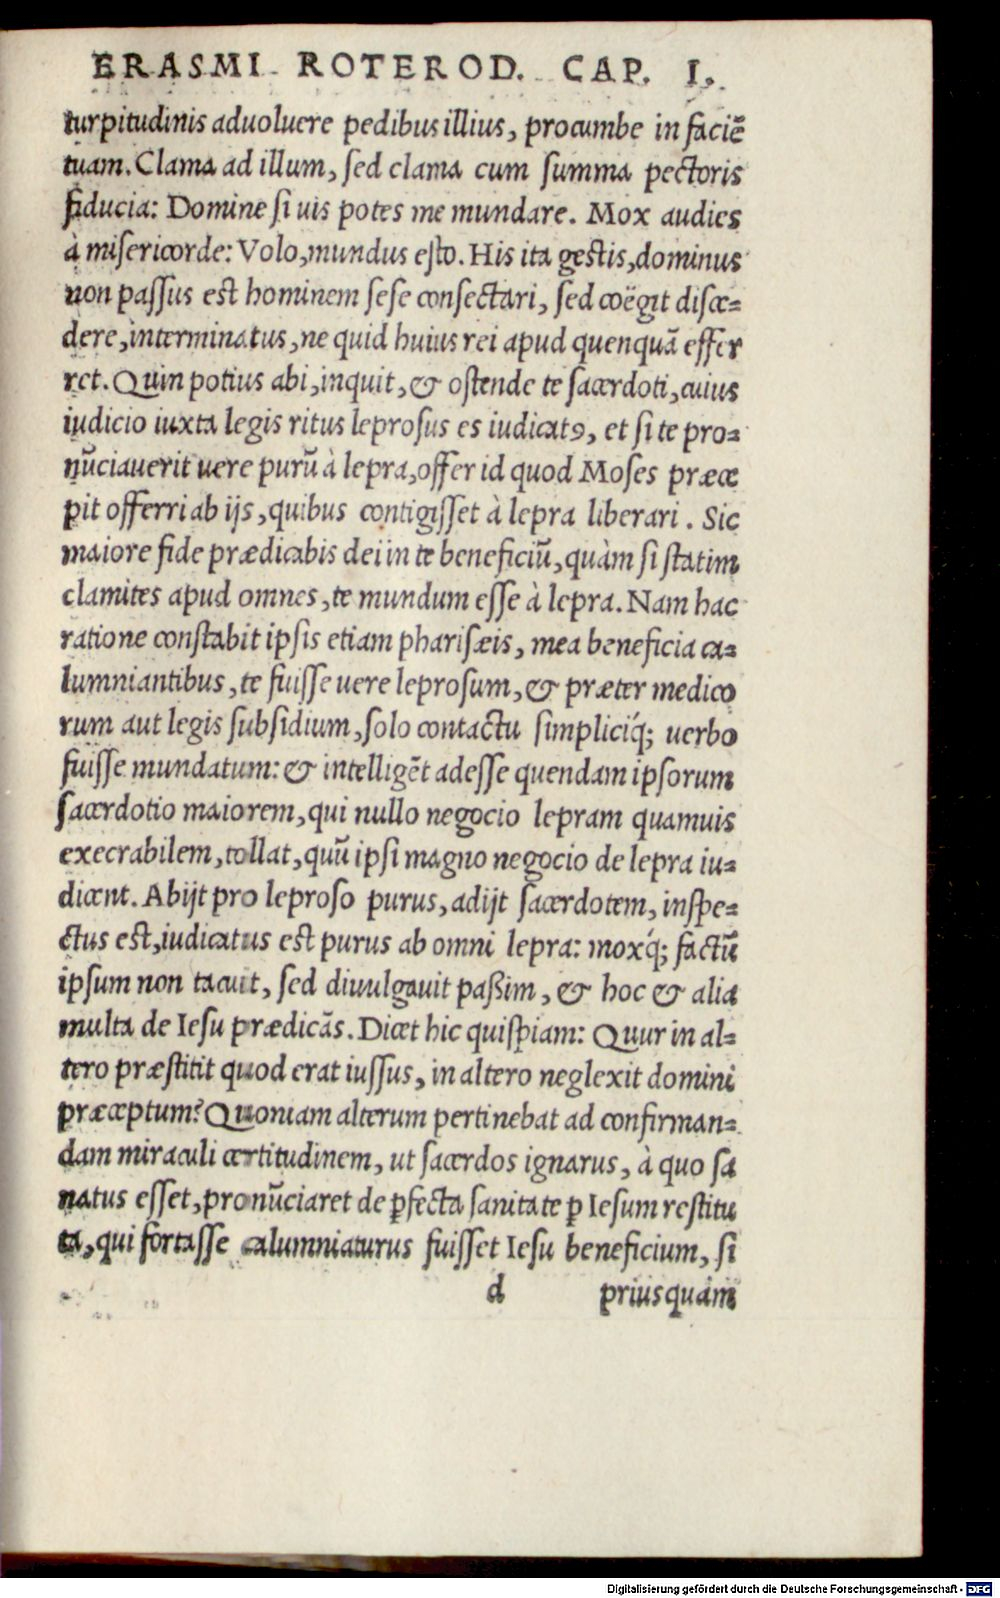 ERASMI ROTEROD. CAP. I.
turpitudinis aduoluere pedibus illius, procumbe in faciē
tuam. Clama ad illum, sed clama cum summa pectoris
fiducia: Domine si uis potes me mundare. Mox audies
à misericorde: Volo, mundus esto. His ita gestis, dominus
non passus est hominem sese consectari, sed coëgit disce-
dere, interminatus, ne quid huius rei apud quenquā effer
ret. Quin potius abi, inquit, & ostende te sacerdoti, cuius
iudicio iuxta legis ritus leprosus es iudicatꝰ, et si te pro-
nūciauerit uere purū à lepra, offer id quod Moses præce
pit offerri ab ijs, quibus contigisset à lepra liberari. Sic
maiore fide prædicabis dei in te beneficiū, quàm si statim
clamites apud omnes, te mundum esse à lepra. Nam hac
ratione constabit ipsis etiam pharisæis, mea beneficia ca-
lumniantibus, te fuisse uere leprosum, & præter medico
rum aut legis subsidium, solo contactu simpliciq́; uerbo
fuisse mundatum: & intelligēt adesse quendam ipsorum
sacerdotio maiorem, qui nullo negocio lepram quamuis
execrabilem, tollat, quū ipsi magno negocio de lepra iu-
dicent. Abijt pro leproso purus, adijt sacerdotem, inspe-
ctus est, iudicatus est purus ab omni lepra: moxq́; factū
ipsum non tacuit, sed diuulgauit paßim, & hoc & alia
multa de Iesu prædicās. Dicet hic quispiam: Quur in al-
tero præstitit quod erat iussus, in altero neglexit domini
præceptum? Quoniam alterum pertinebat ad confirman-
dam miraculi certitudinem, ut sacerdos ignarus, à quo sa
natus esset, pronūciaret de ꝑfecta sanitate ꝑ Iesum restitu
ta, qui fortasse calumniaturus fuisset Iesu beneficium, si
d priusquàm
Digitalisierung gefördert durch die Deutsche Forschungsgemeinschaft - DFG